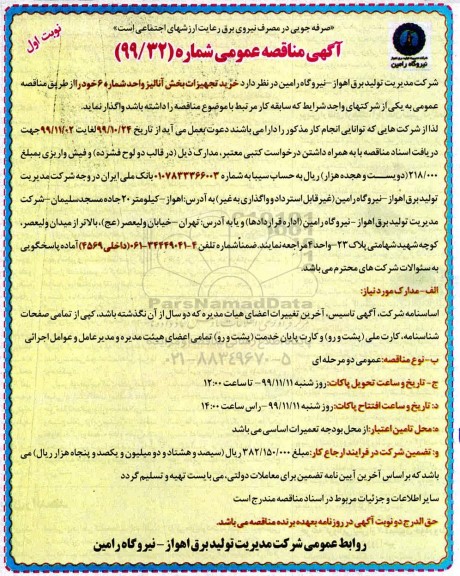 «صرفه جویی در مصرف نیروی برق رعایت ارزشهای اجتماعی است»
نوبت اول
آگهی مناقصه عمومی شماره (۹۹/۳۲)
نیروگاه رامین
شرکت مدیریت تولید برق اهواز – نیروگاه رامین در نظر دارد خرید تجهیزات بخش آنالیز واحد شماره ۶ خود را از طریق مناقصه
عمومی به یکی از شرکتهای واجد شرایط که سابقه کار مرتبط با موضوع مناقصه را داشته باشد واگذار نماید.
لذا از شرکت هایی که توانایی انجام کار مذکور را دارا می باشند دعوت بعمل می آید از تاریخ ۹۹/۱۰/۲۴ لغایت ۹۹/۱۱/۰۲ جهت
دریافت اسناد مناقصه با به همراه داشتن درخواست کتبی معتبر، مدارک ذیل (در قالب دو لوح فشرده) و فیش واریزی بمبلغ
۲۱۸/۰۰۰ (دویست و هجده هزار) ریال به حساب سیبا به شماره ۰۱۰۷۸۳۳۳۶۶۰۰۳ بانک ملی ایران در وجه شرکت مدیریت
تولید برق اهواز – نیروگاه رامین (غیر قابل استرداد و واگذاری به غیر) به آدرس: اهواز – کیلومتر ۲۰ جاده مسجدسلیمان – شرکت
مدیریت تولید برق اهواز – نیروگاه رامین (اداره قراردادها) و یا به آدرس: تهران – خیابان ولیعصر (عج)، بالاتر از میدان ولیعصر،
کوچه شهید شهامتی پلاک ۲۳ – واحد ۴ مراجعه نمایند. ضمنا شماره تلفن ۴–۳۴۴۴۹۰۴۱–۰۶۱ (داخلی ۴۵۶۹) آماده پاسخگویی
به سئوالات شرکت های محترم می باشد.
الف – مدارک مورد نیاز:
اساسنامه شرکت، آگهی تاسیس، آخرین تغییرات اعضای هیات مدیره که دو سال از آن نگذشته باشد، کپی از تمامی صفحات
شناسنامه، کارت ملی (پشت و رو) و کارت پایان خدمت (پشت و رو) تمامی اعضای هیئت مدیره و مدیر عامل و عوامل اجرائی
ب – نوع مناقصه: عمومی دو مرحله ای
ج – تاریخ و ساعت تحویل پاکات: روز شنبه ۹۹/۱۱/۱۱ – تا ساعت ۱۲:۰۰
د: تاریخ و ساعت افتتاح پاکات: روز شنبه ۹۹/۱۱/۱۱ – راس ساعت ۱۴:۰۰
ه: محل تامین اعتبار: از محل بودجه تعمیرات اساسی می باشد
و: تضمین شرکت در فرایند ارجاع کار: مبلغ ۳۸۲/۱۵۰/۰۰۰ ریال (سیصد و هشتاد و دو میلیون و یکصد و پنجاه هزار ریال) می
باشد که بر اساس آخرین آیین نامه تضمین برای معاملات دولتی، می بایست تهیه و تسلیم گردد
سایر اطلاعات و جزئیات مربوط در اسناد مناقصه مندرج است
حق الدرج دو نوبت آگهی در روزنامه بعهده برنده مناقصه می باشد.
روابط عمومی شرکت مدیریت تولید برق اهواز – نیروگاه رامین
ParsNamadData
۰۲۱–۸۸۳۴۹۶۷۰–۵